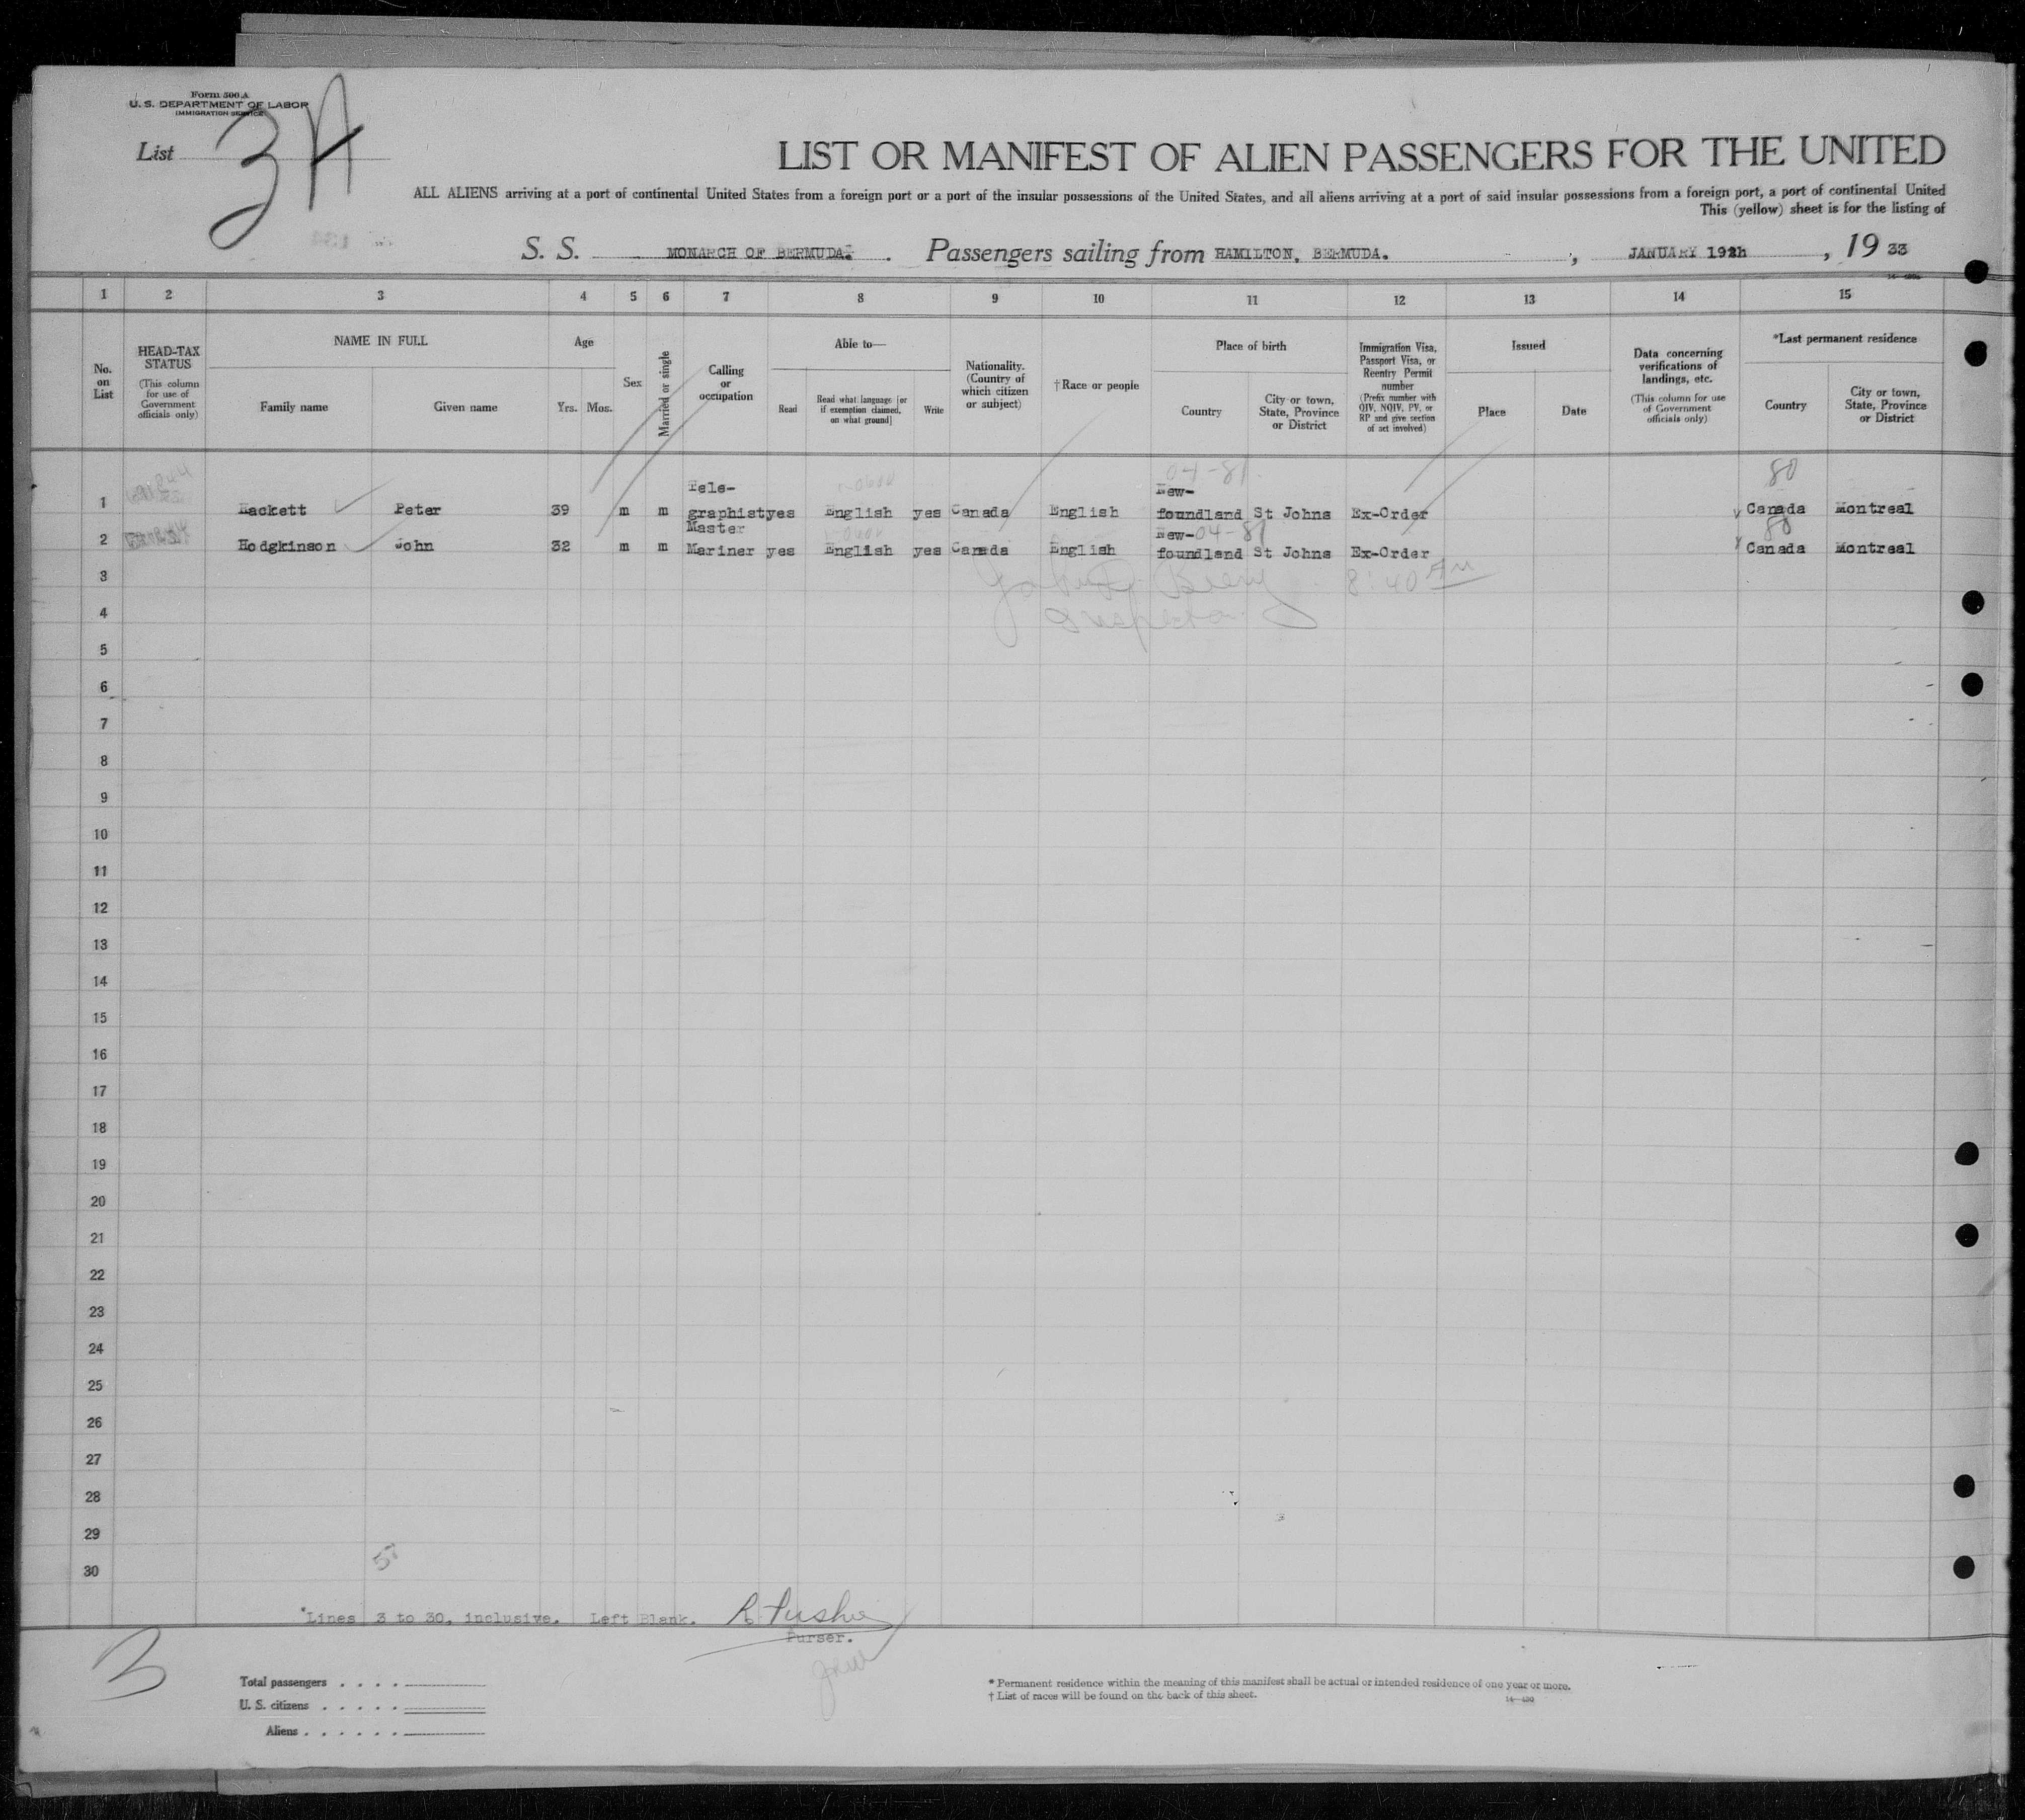 Form 500 A
U. S. DEPARTMENT OF LABOR
IMMIGRATION SERVICE
List 3 A
LIST OR MANIFEST OF ALIEN PASSENGERS FOR THE UNITED
ALL ALIENS arriving at a port of continental United States from a foreign port or a port of the insular possessions of the United States, and all aliens arriving at a port of said insular possessions from a foreign port, a port of continental United
This (yellow) sheet is for the listing of
S. S. MONARCH OF BERMUDA. Passengers sailing from HAMILTON, BERMUDA. , JANUARY 19th , 19 33
1 2 3 4 5 6 7 8 9 10 11 12 13 14 15
No. on List
HEAD-TAX STATUS
(This column for use of Government officials only)
NAME IN FULL
Family name Given name
Age
Yrs. Mos.
Sex
Married or single
Calling or occupation
Able to—
Read
Read what language [or if exemption claimed, on what ground]
Write
Nationality. (Country of which citizen or subject)
†Race or people
Place of birth
Country
City or town, State, Province or District
Immigration Visa, Passport Visa, or Reentry Permit number
(Prefix number with QIV, NQIV, PV, or RP and give section of act involved)
Issued
Place Date
Data concerning verifications of landings, etc.
(This column for use of Government officials only)
*Last permanent residence
Country
City or town, State, Province or District
04-81 80
Tele- New-
1 Hackett Peter 39 m m graphist yes English yes Canada English foundland St Johns Ex-Order Canada Montreal
Master New- 04-81 80
2 Hodgkinson John 32 m m Mariner yes English yes Canada English foundland St Johns Ex-Order Canada Montreal
3 8:40 AM
4 Inspector
5
6
7
8
9
10
11
12
13
14
15
16
17
18
19
20
21
22
23
24
25
26
27
28
29
30
*Lines 3 to 30, inclusive. Left Blank.
Purser.
3
Total passengers . . . .
U. S. citizens . . . . .
Aliens . . . . . .
* Permanent residence within the meaning of this manifest shall be actual or intended residence of one year or more.
† List of races will be found on the back of this sheet.
14—430